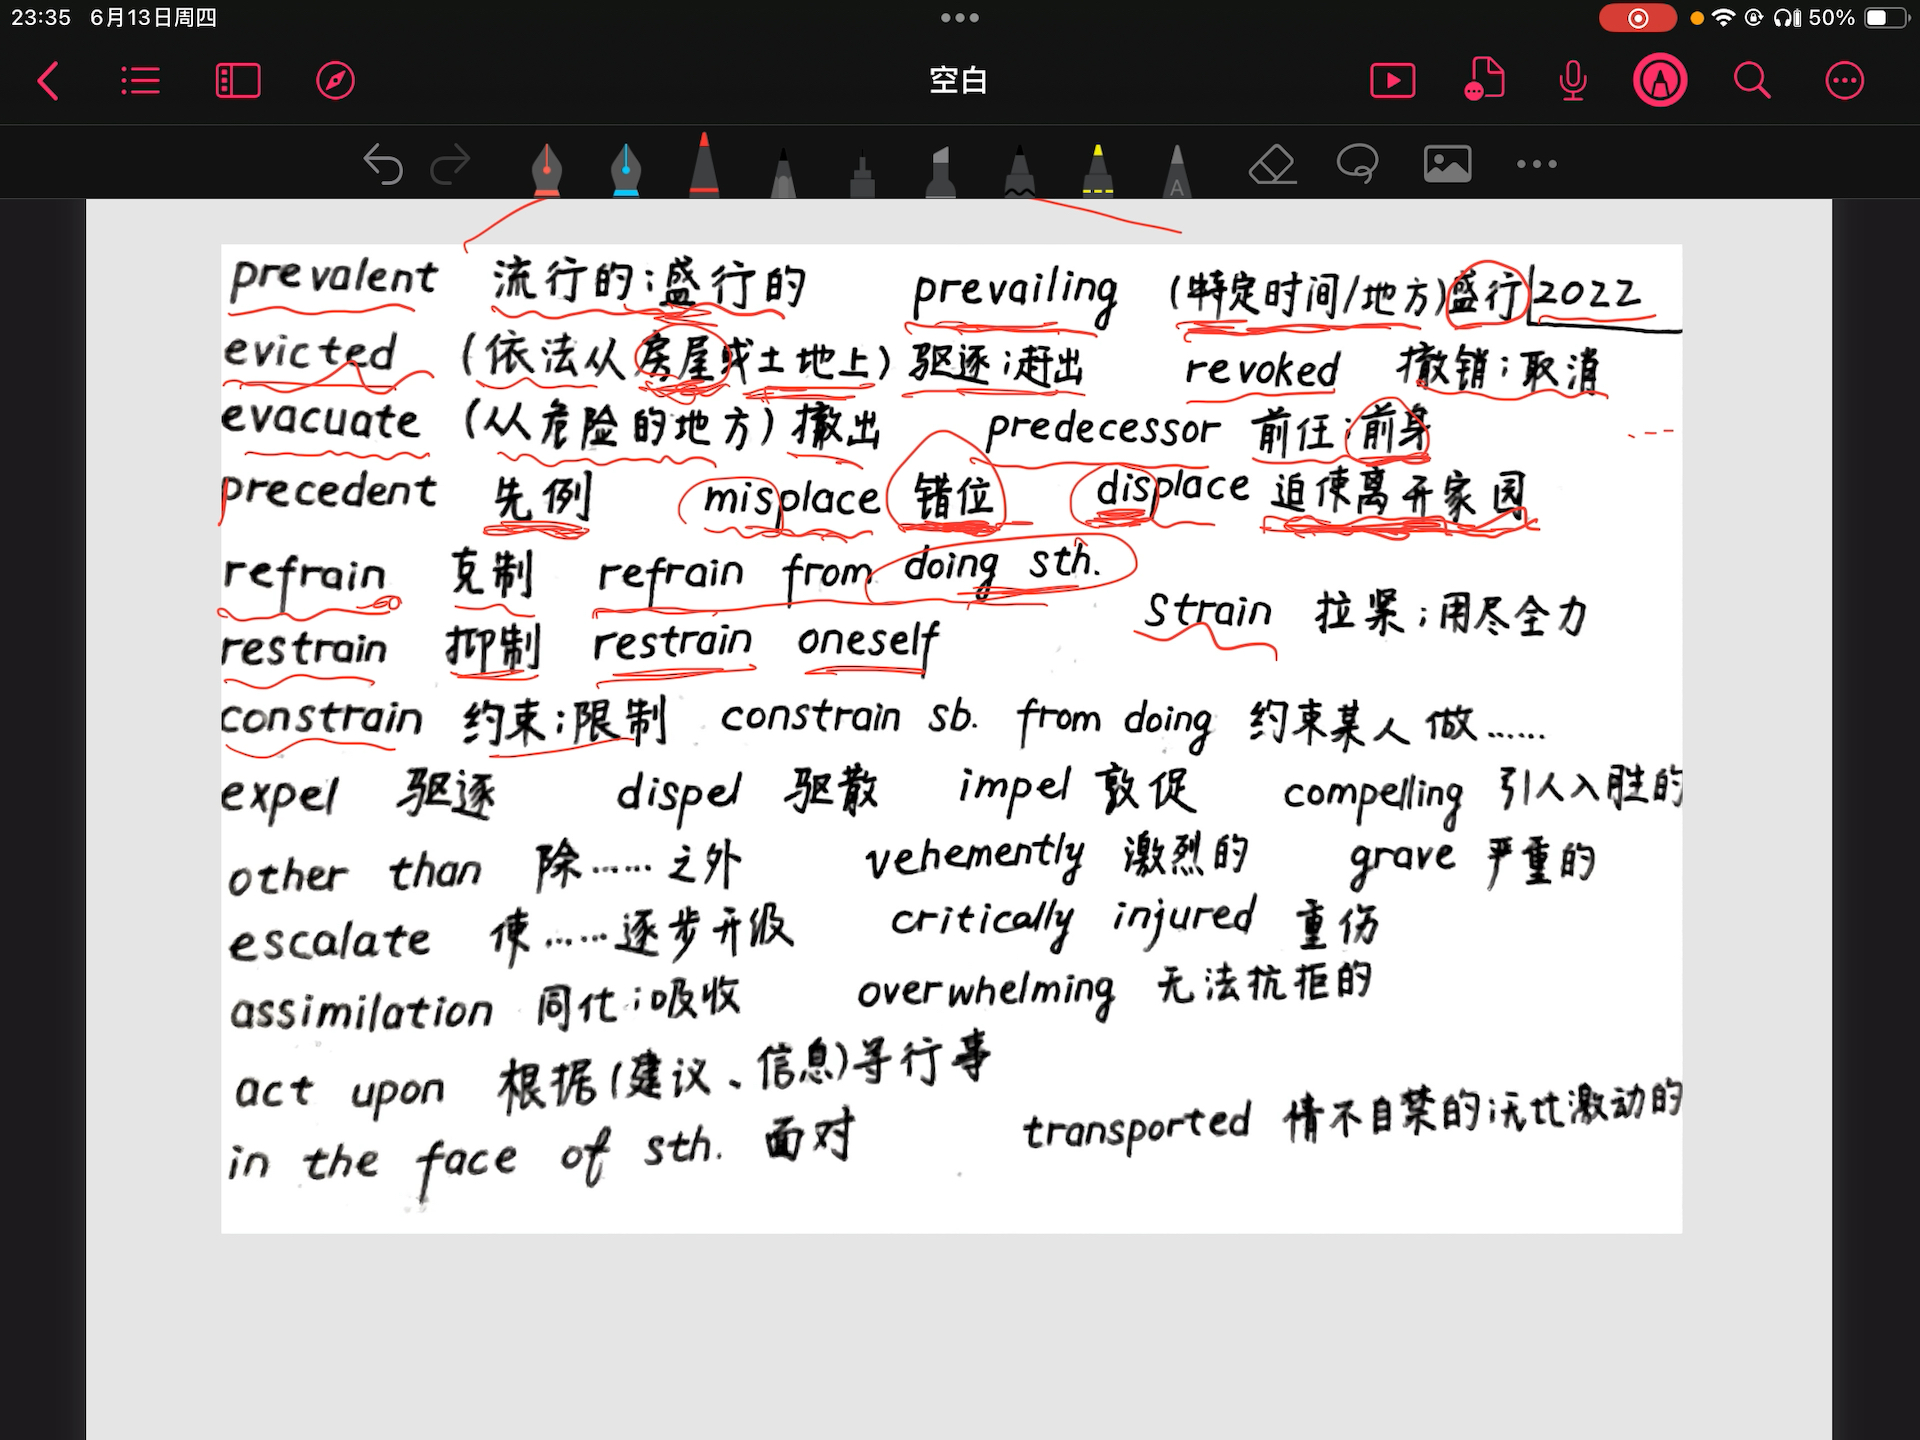 23:35 6月13日周四
50%
空白
A
prevalent 流行的;盛行的 prevailing (特定时间/地方)盛行 2022
evicted (依法从房屋或土地上)驱逐;赶出 revoked 撤销;取消
evacuate (从危险的地方)撤出 predecessor 前任;前身
precedent 先例 misplace 错位 displace 迫使离开家园
refrain 克制 refrain from doing sth.
strain 拉紧;用尽全力
restrain 抑制 restrain oneself
constrain 约束;限制 constrain sb. from doing 约束某人做……
expel 驱逐 dispel 驱散 impel 敦促 compelling 引人入胜的
other than 除……之外 vehemently 激烈的 grave 严重的
escalate 使……逐步升级 critically injured 重伤
assimilation 同化;吸收 overwhelming 无法抗拒的
act upon 根据(建议、信息)等行事
in the face of sth. 面对 transported 情不自禁的;无比激动的